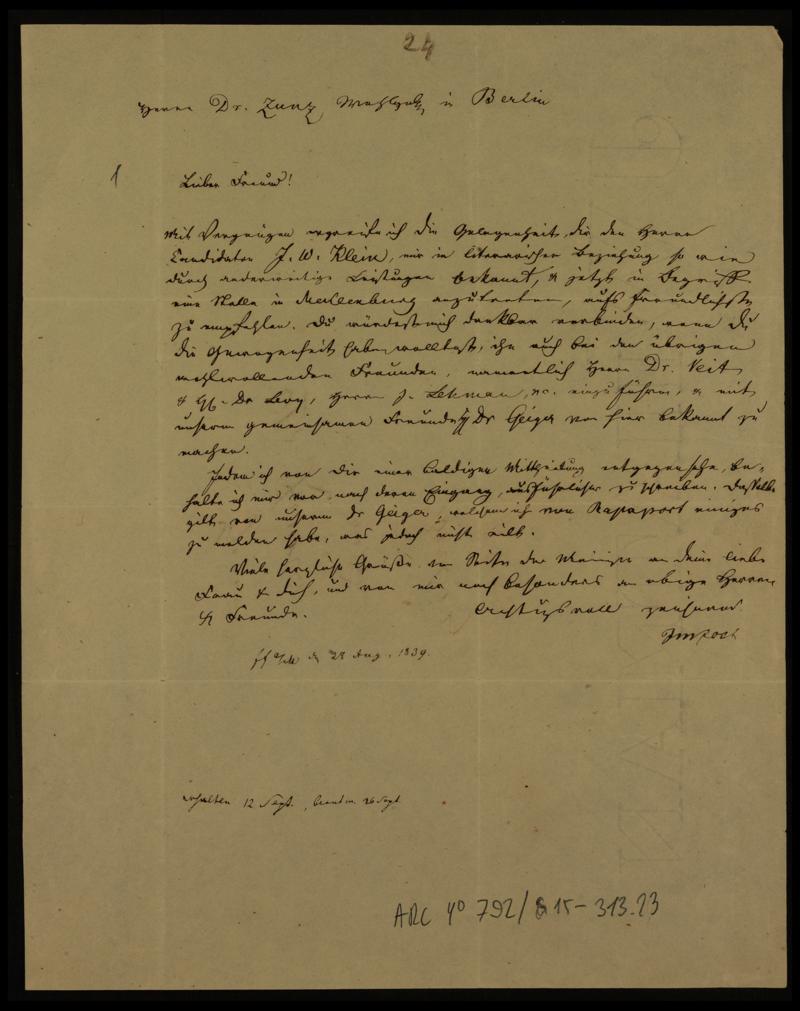 24
Herrn Dr. Zunz Wohlgeb. in Berlin
1
Lieber Freund!
Mit Vergnügen ergreife ich die Gelegenheit, dir den Herrn
Candidaten J. W. Klein, mir in literarischer Beziehung so wie
durch anderweitige Leistungen bekannt, & jetzt im Begriff
eine Stelle in Mecklenburg anzutreten, aufs freundlichste
zu empfehlen. Du würdest mich dankbar verbinden, wenn du
die Gewogenheit haben wolltest, ihn auch bei den übrigen
wohlwollenden Freunden, namentlich Herrn Dr. Veit
& HE. Dr Levy, Herrn J. Lehman, etc. einzuführen, & mit
unserm gemeinsamen Freunde Dr Geiger von hier bekannt zu
machen.
Indem ich von dir einer baldigen Mittheilung entgegensehe, be-
halte ich mir vor, nach deren Eingang, ausführlicher zu schreiben. Dasselbe
gilt von unserm Dr Geiger, welchem ich von Rapaport einiges
zu melden habe, was jedoch nicht eilt.
Viele herzliche Grüße von Seiten der Meinigen an deine liebe
Frau & dich, und von mir noch besonders an obige Herren
& Freunde.
Achtungsvoll
JMJost
Ff a/M d 28 Aug. 1839.
erhalten 12 Sept., beantw. 26 Sept.
ARC 4° 792/G 15-313.23